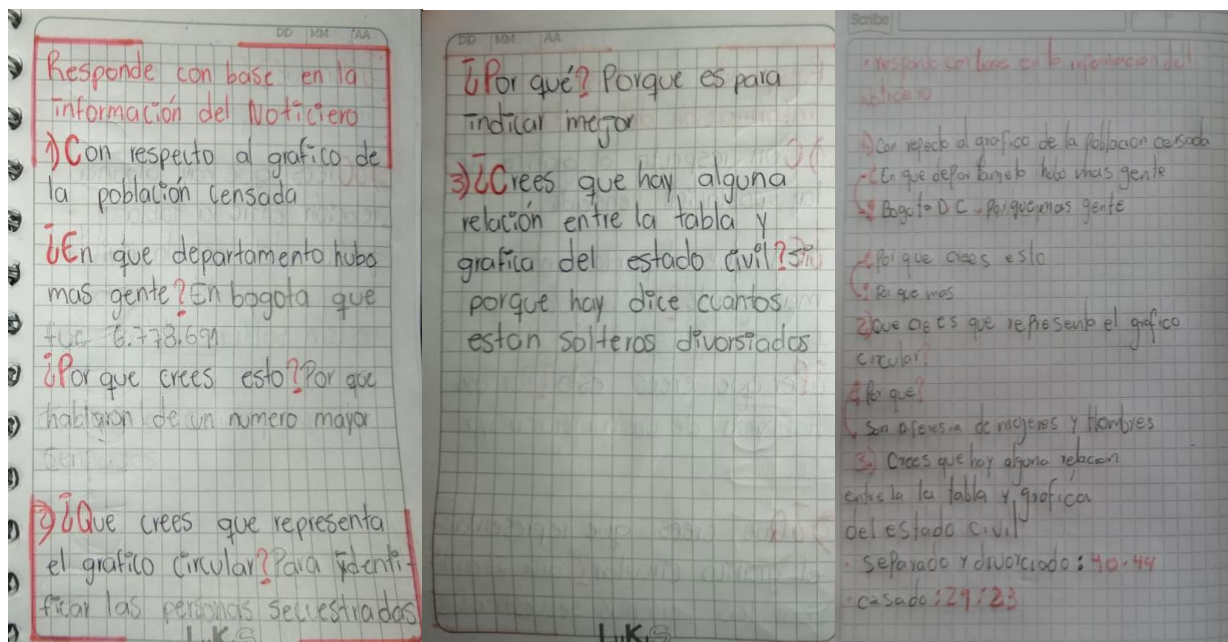 DD MM AA
Responde con base en la
información del Noticiero
1) Con respecto al grafico de
la población censada
¿En que departamento hubo
mas gente? En bogota que
fue 6.778.691
¿Por que crees esto? Por que
hablaron de un numero mayor
2) ¿Que crees que representa
el grafico circular? Para identi-
ficar las personas secuestradas
L.K.S
DD MM AA
¿Por qué? Porque es para
indicar mejor
3) ¿Crees que hay alguna
relación entre la tabla y
grafica del estado civil? Si
porque hay dice cuantos
estan solteros divorsiados
L.K.S
Scribe
responde con base en la información del
noticiero
1) Con respecto al grafico de la poblacion censada
¿En que departamento hubo mas gente
Bogota D.C. Porque mas gente
¿Por que crees esto
Por que mas
2) Que crees que representa el grafico
circular?
¿Por que?
Son de mojeres y Hombres
3) Crees que hay alguna relacion
entre la la tabla y grafica
Del estado Civil
· Separado y divorciado: 40.44
· casado: 29:23